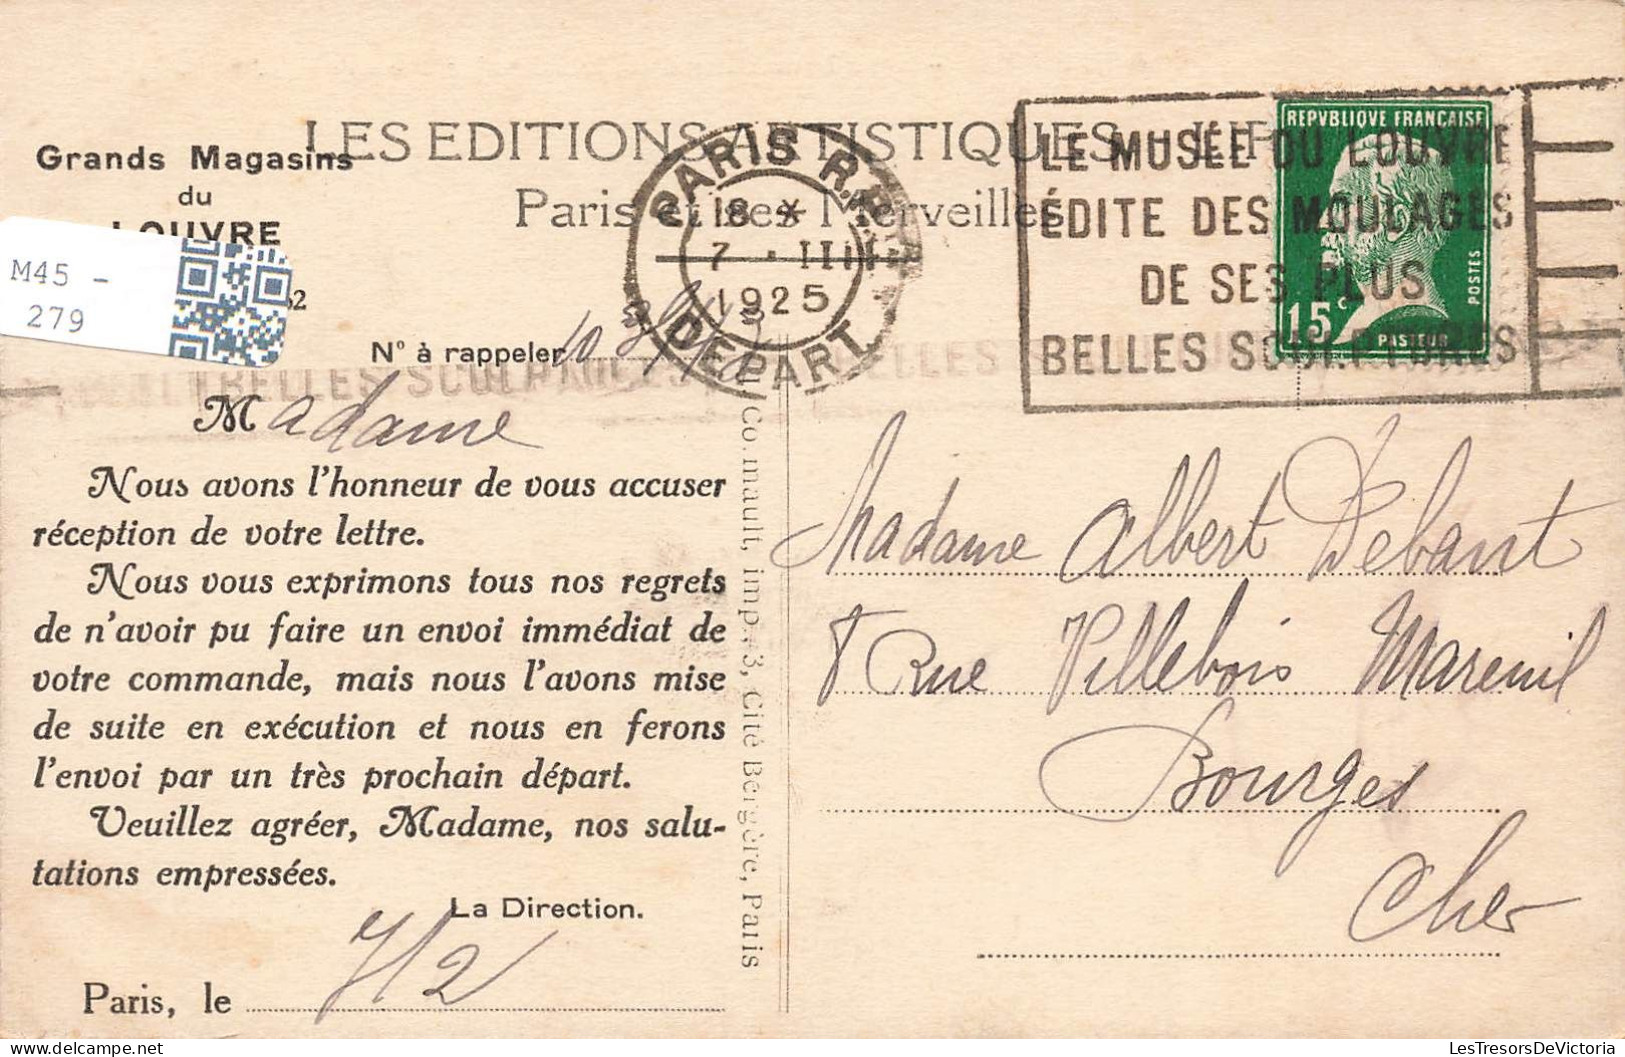 LES EDITIONS ARTISTIQUES
Paris et ses Merveilles
Grands Magasins
du
LOUVRE
M45 -
279
N° à rappeler
Madame
Nous avons l'honneur de vous accuser
réception de votre lettre.
Nous vous exprimons tous nos regrets
de n'avoir pu faire un envoi immédiat de
votre commande, mais nous l'avons mise
de suite en exécution et nous en ferons
l'envoi par un très prochain départ.
Veuillez agréer, Madame, nos salu-
tations empressées.
La Direction.
Paris, le 7/2
imp., 3, Cité Bergère, Paris
PARIS R.P.
18 *
7 - III
1925
DEPART
LE MUSÉE DU LOUVRE
ÉDITE DES MOULAGES
DE SES PLUS
BELLES SCULPTURES
REPVBLIQVE FRANÇAISE
POSTES
15c
PASTEUR
BELLES SCULPTURES
Madame Albert Debant
8 Rue Villebois Mareuil
Bourges
Cher
LesTresorsDeVictoria.com